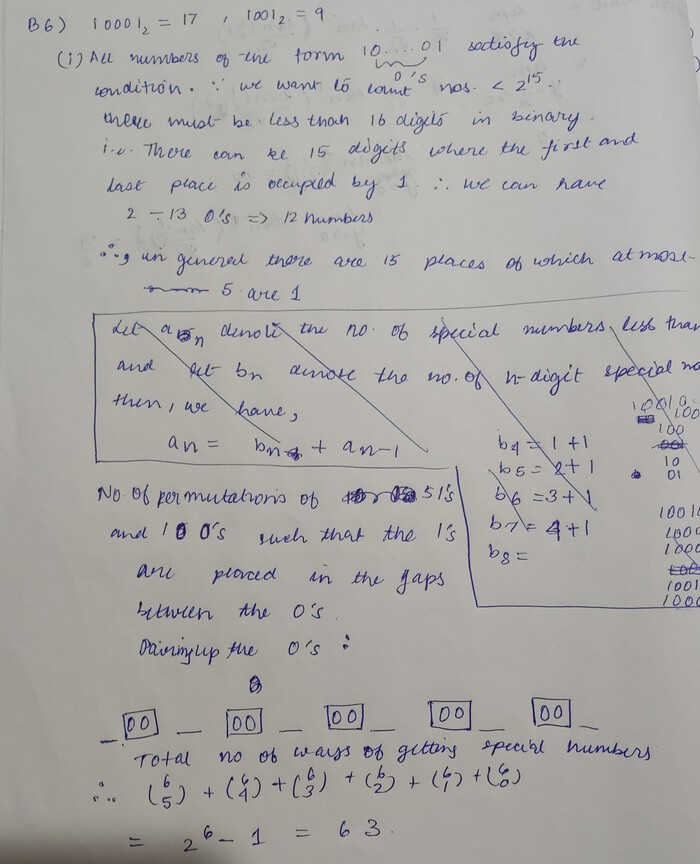 B6) 10001₂ = 17 , 1001₂ = 9
(i) All numbers of the form 10....01 satisfy the
0's
condition. ∵ we want to count nos. < 2^15.
there must be less than 16 digits in binary.
i.e. There can be 15 digits where the first and
last place is occupied by 1 ∴ we can have
2 - 13 0's => 12 numbers
∴, in general there are 15 places of which at most
5 are 1
Let a_n denote the no. of special numbers less than
and let b_n denote the no. of n-digit special no
then, we have,
a_n = b_n + a_{n-1}
b4 = 1 + 1
b5 = 2 + 1
b6 = 3 + 1
b7 = 4 + 1
b8 =
10010
100
100
10
01
1001
1000
1000
1001
1000
No. of permutations of 5 1's
and 10 0's such that the 1's
are placed in the gaps
between the 0's.
Pairing up the 0's :
_ 00 _ 00 _ 00 _ 00 _ 00 _
Total no of ways of getting special numbers
∴ (6 5) + (6 4) + (6 3) + (6 2) + (6 1) + (6 0)
= 2^6 - 1 = 63.